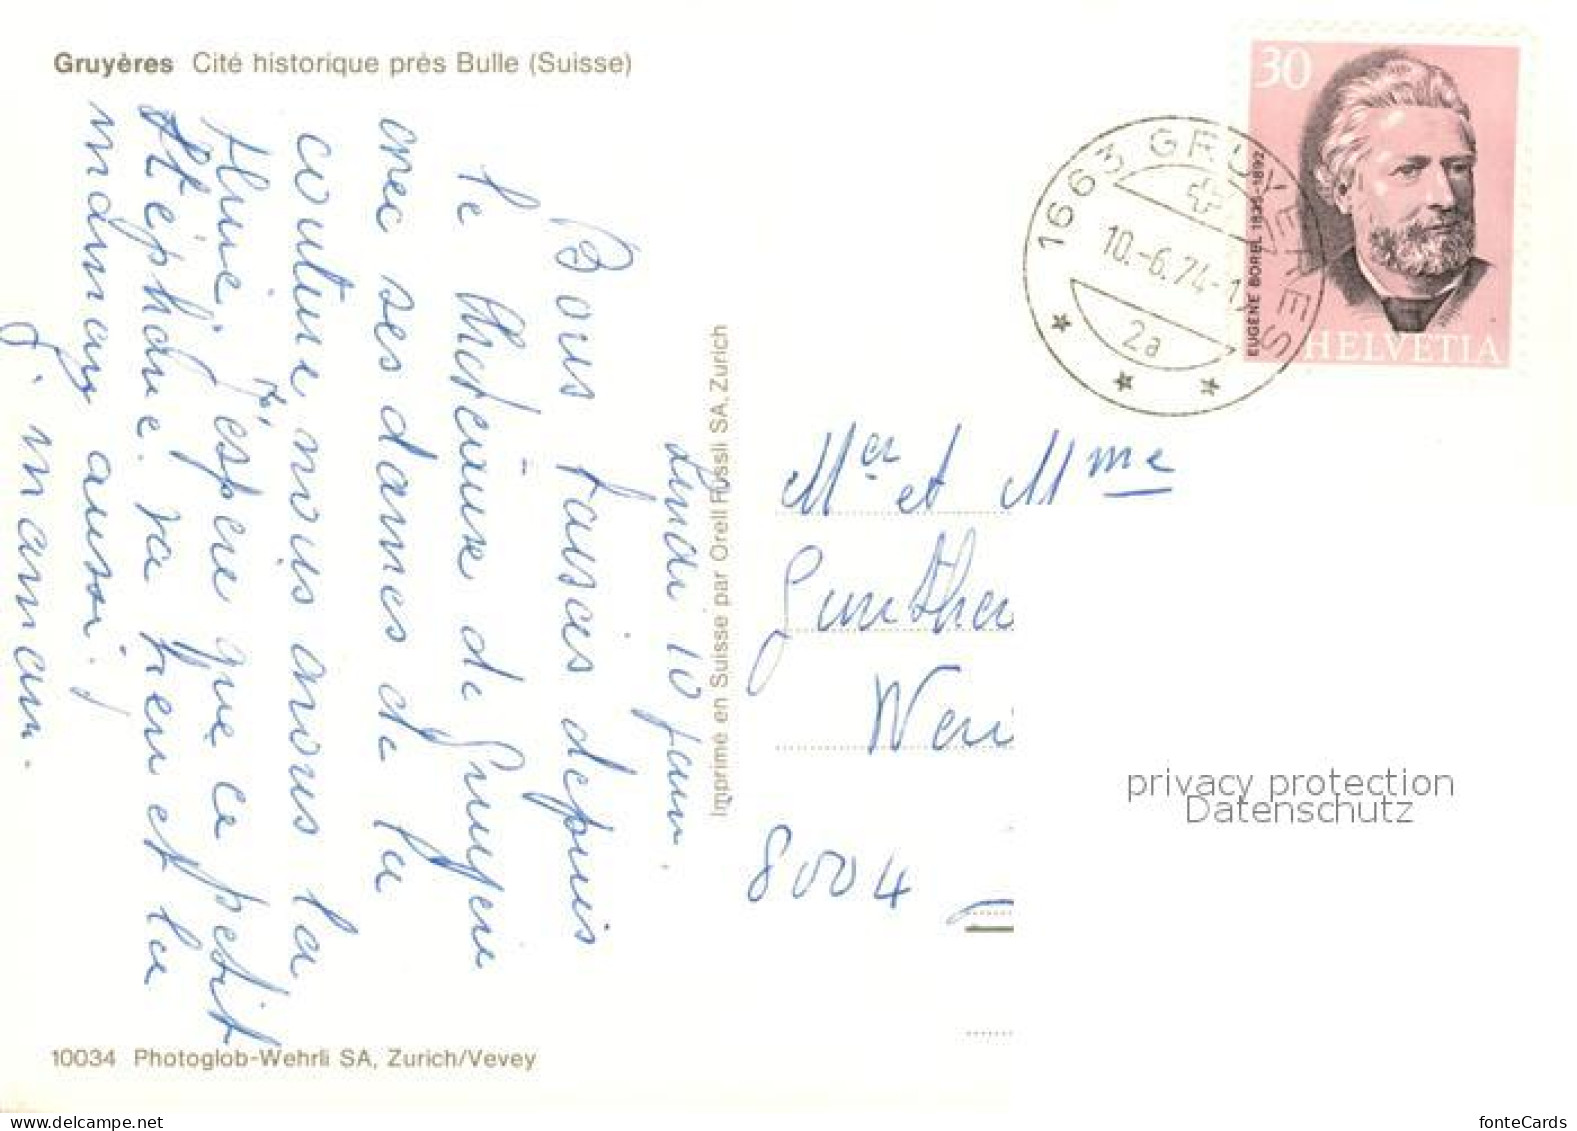 Gruyères Cité historique près Bulle (Suisse)
Lundi 10 juin.
Bons baisers depuis
le château de Gruyère
avec ses dames de la
couture nous avons la
pluie, j'espère que ce petit
Stéphane va bien et la
maman aussi!
maman.
Imprimé en Suisse par Orell Füssli SA, Zurich
10034 Photoglob-Wehrli SA, Zurich/Vevey
30
EUGÈNE BOREL 1835-1892
HELVETIA
1663 GRUYERES
10.-6.74-1
2a
Mer et Mme
Gunther
8004
privacy protection
Datenschutz
www.delcampe.net
fonteCards